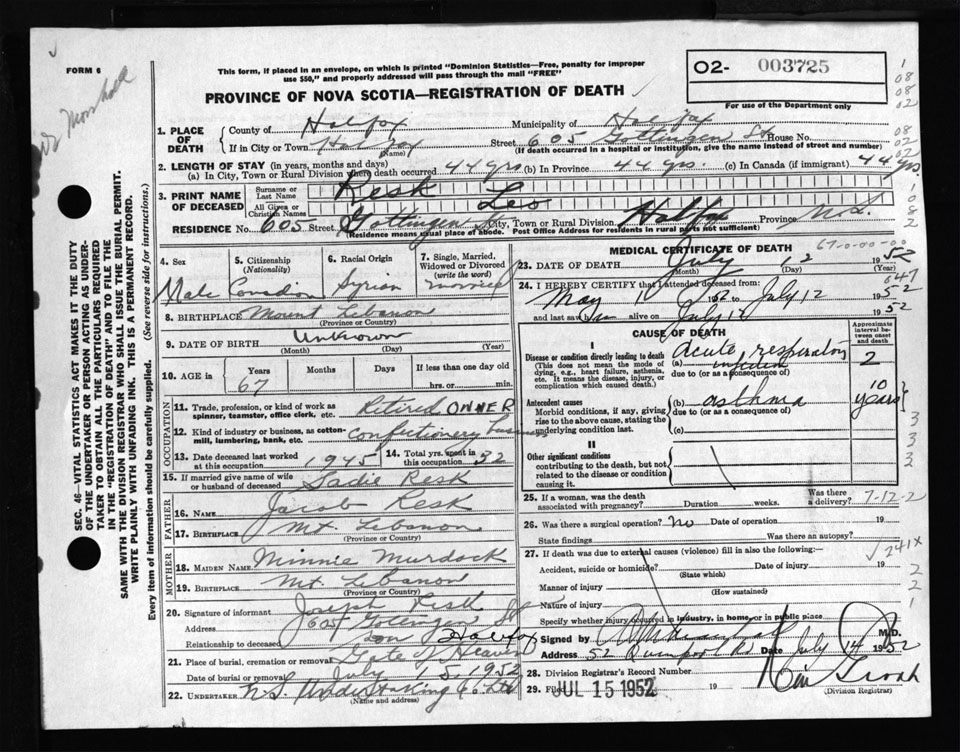 FORM 6
This form, if placed in an envelope, on which is printed "Dominion Statistics—Free, penalty for improper
use $50," and properly addressed will pass through the mail "FREE"
PROVINCE OF NOVA SCOTIA—REGISTRATION OF DEATH
O2- 003725
For use of the Department only
1. PLACE OF DEATH
County of Halifax Municipality of Halifax
If in City or Town Halifax (Name) Street 605 Gottingen St. House No.
(If death occurred in a hospital or institution, give the name instead of street and number)
2. LENGTH OF STAY (in years, months and days)
(a) In City, Town or Rural Division where death occurred 44 yrs (b) In Province 44 yrs. (c) In Canada (if immigrant) 44 yrs.
3. PRINT NAME OF DECEASED
Surname or Last Name Resk
All Given or Christian Names Leo
RESIDENCE No. 605 Street Gottingen St City, Town or Rural Division Halifax Province N.S.
(Residence means usual place of abode. Post Office Address for residents in rural parts not sufficient)
4. Sex
5. Citizenship (Nationality)
6. Racial Origin
7. Single, Married, Widowed or Divorced (write the word)
Male Canadian Syrian married
8. BIRTHPLACE Mount Lebanon
(Province or Country)
9. DATE OF BIRTH Unknown
(Month) (Day) (Year)
10. AGE in Years Months Days If less than one day old
67 hrs. or min.
OCCUPATION
11. Trade, profession, or kind of work as spinner, teamster, office clerk, etc. Retired OWNER
12. Kind of industry or business, as cotton-mill, lumbering, bank, etc. confectionery business
13. Date deceased last worked at this occupation 1945
14. Total yrs. spent in this occupation 32
15. If married give name of wife or husband of deceased Sadie Resk
FATHER
16. Name Jacob Resk
17. Birthplace Mt. Lebanon
(Province or Country)
MOTHER
18. MAIDEN NAME Minnie Murdock
19. BIRTHPLACE Mt. Lebanon
(Province or Country)
20. Signature of informant Joseph Resk
Address 605 Gottingen St
Relationship to deceased son Halifax
21. Place of burial, cremation or removal Gate of Heaven
Date of burial or removal July 15, 1952
22. UNDERTAKER N.S. Undertaking Co Ltd
(Name and address)
MEDICAL CERTIFICATE OF DEATH
67-0-00-00
23. DATE OF DEATH July 12 1952
(Month) (Day) (Year)
24. I HEREBY CERTIFY that I attended deceased from:
May 1 1952 to July 12 1952
and last saw him alive on July 12 1952
CAUSE OF DEATH
Approximate interval between onset and death
I
Disease or condition directly leading to death
(This does not mean the mode of dying, e.g., heart failure, asthenia, etc. It means the disease, injury, or complication which caused death.)
(a) Acute respiratory infection 2
due to (or as a consequence of)
Antecedent causes
Morbid conditions, if any, giving rise to the above cause, stating the underlying condition last.
(b) asthma 10 years
due to (or as a consequence of)
(c)
II
Other significant conditions
contributing to the death, but not related to the disease or condition causing it.
25. If a woman, was the death associated with pregnancy? Duration weeks. Was there a delivery? 7-12-2
26. Was there a surgical operation? no Date of operation 19
State findings Was there an autopsy?
27. If death was due to external causes (violence) fill in also the following:—
241X
Accident, suicide or homicide? Date of injury 19
(State which)
Manner of injury
(How sustained)
Nature of injury
Specify whether injury occurred in industry, in home, or in public place
Signed by M.D.
Address 52 Quinpool Rd Date July 14 1952
28. Division Registrar's Record Number
29. Filed JUL 15 1952 19
(Division Registrar)
SEC. 46—VITAL STATISTICS ACT MAKES IT THE DUTY
OF THE UNDERTAKER OR PERSON ACTING AS UNDER-
TAKER TO OBTAIN ALL THE PARTICULARS REQUIRED
IN THE "REGISTRATION OF DEATH" AND TO FILE THE
SAME WITH THE DIVISION REGISTRAR WHO SHALL ISSUE THE BURIAL PERMIT.
WRITE PLAINLY WITH UNFADING INK. THIS IS A PERMANENT RECORD.
Every item of information should be carefully supplied. (See reverse side for instructions.)